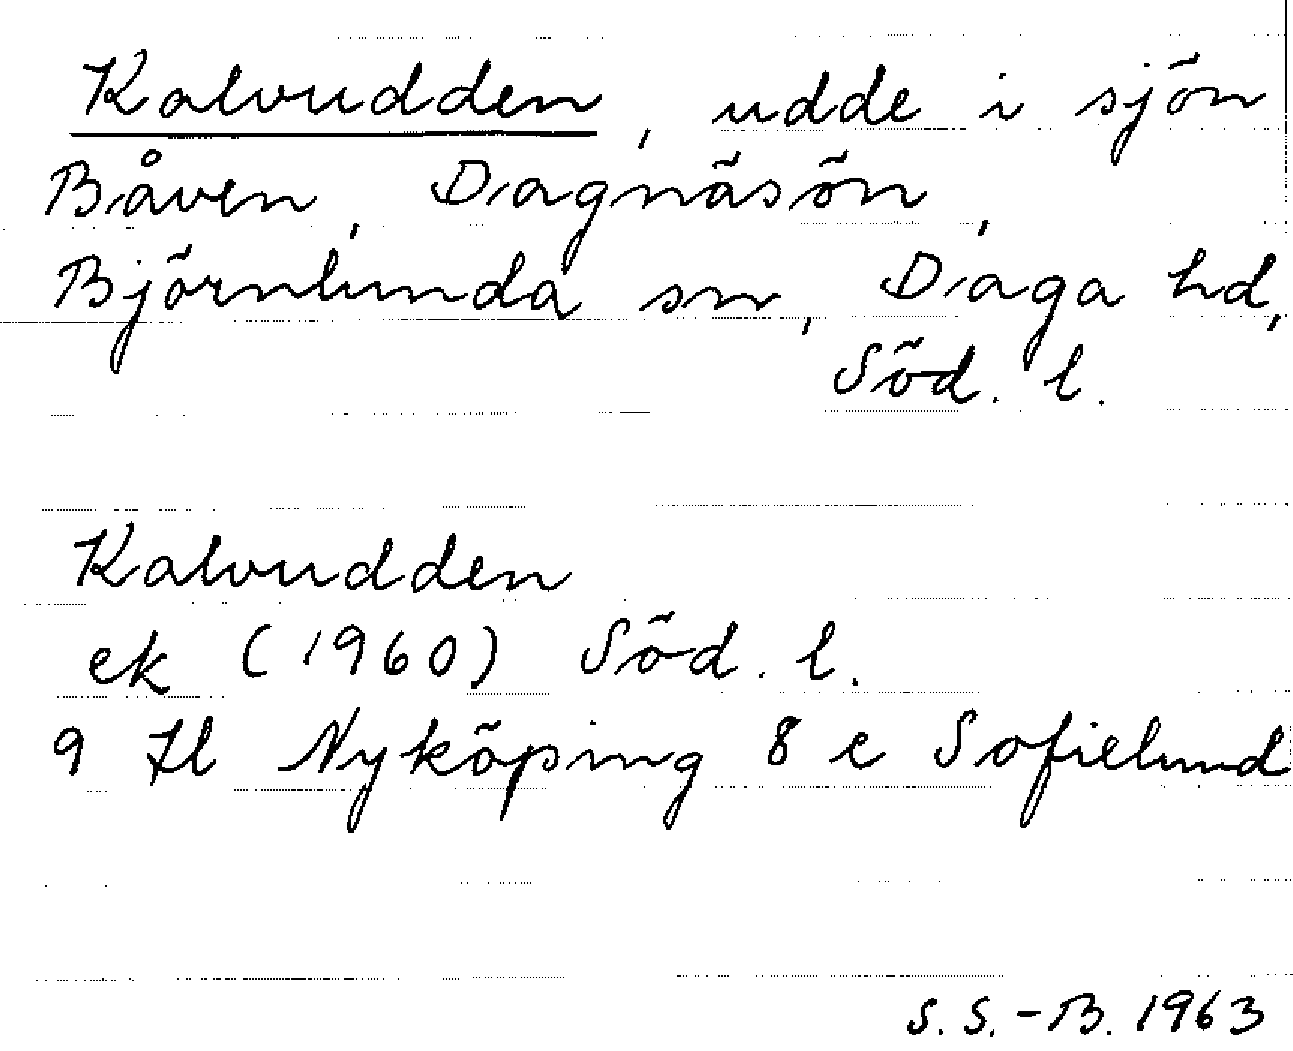 Kalvudden, udde i sjön
Båven, Dagnäsön,
Björnlunda sn, Daga hd,
Söd. l.
Kalvudden
ek (1960) Söd. l.
9 Il Nyköping 8 e Sofielund
S. S.-B. 1963